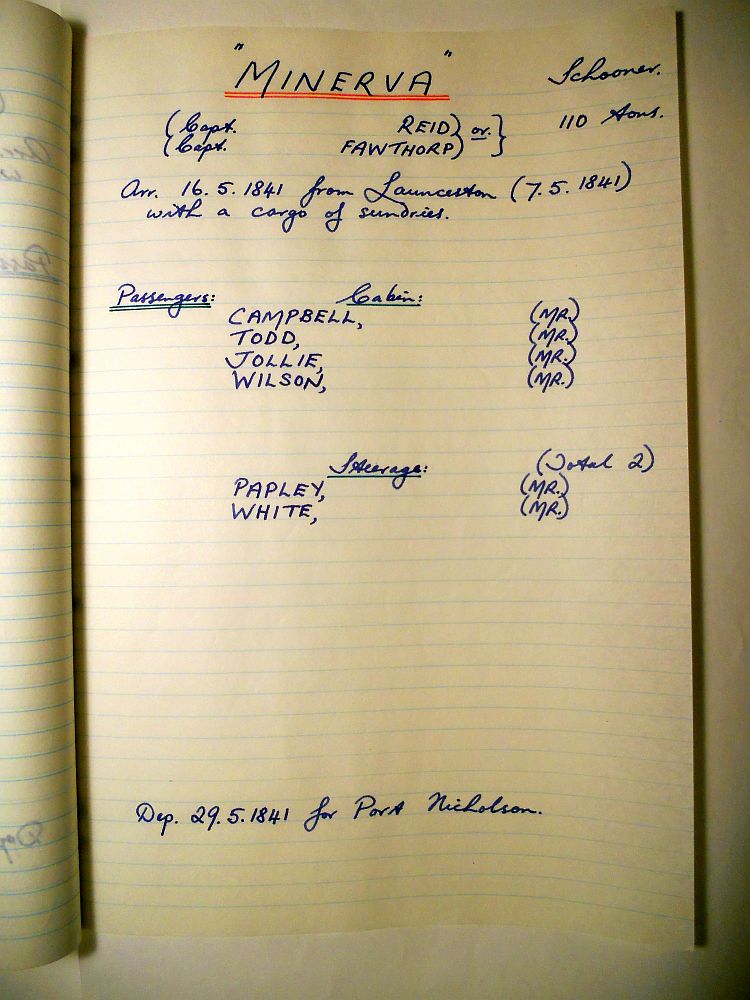 "MINERVA" Schooner.
(Capt. REID) or. } 110 Tons.
(Capt. FAWTHORP)
Arr. 16.5.1841 from Launceston (7.5.1841)
with a cargo of sundries.
Passengers: Cabin:
CAMPBELL, (MR.)
TODD, (MR.)
JOLLIE, (MR.)
WILSON, (MR.)
Steerage: (Total 2)
PAPLEY, (MR.)
WHITE, (MR.)
Dep. 29.5.1841 for Port Nicholson.